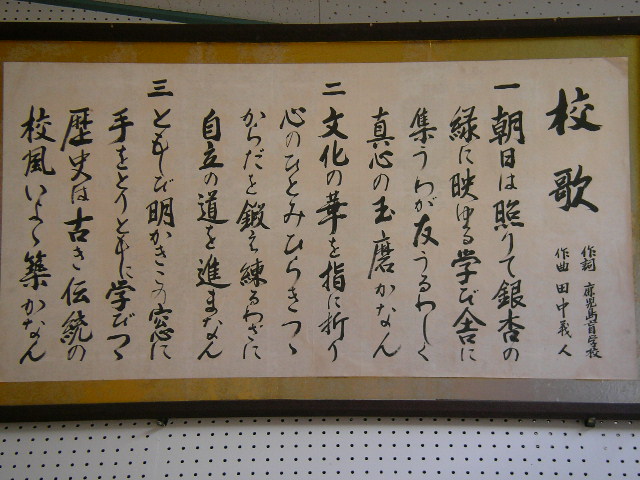 校歌
作詞 鹿児島盲学校
作曲 田中義人
一 朝日は照りて銀杏の
緑に映ゆる学び舎に
集うわが友うるわしく
真心の玉磨かなん
二 文化の華を指に折り
心のひとみひらきつゝ
からだを鍛え練るわざに
自立の道を進まなん
三 ともしび明かきこの窓に
手をとりともに学びつゝ
歴史は古き伝統の
校風いよ〱築かなん